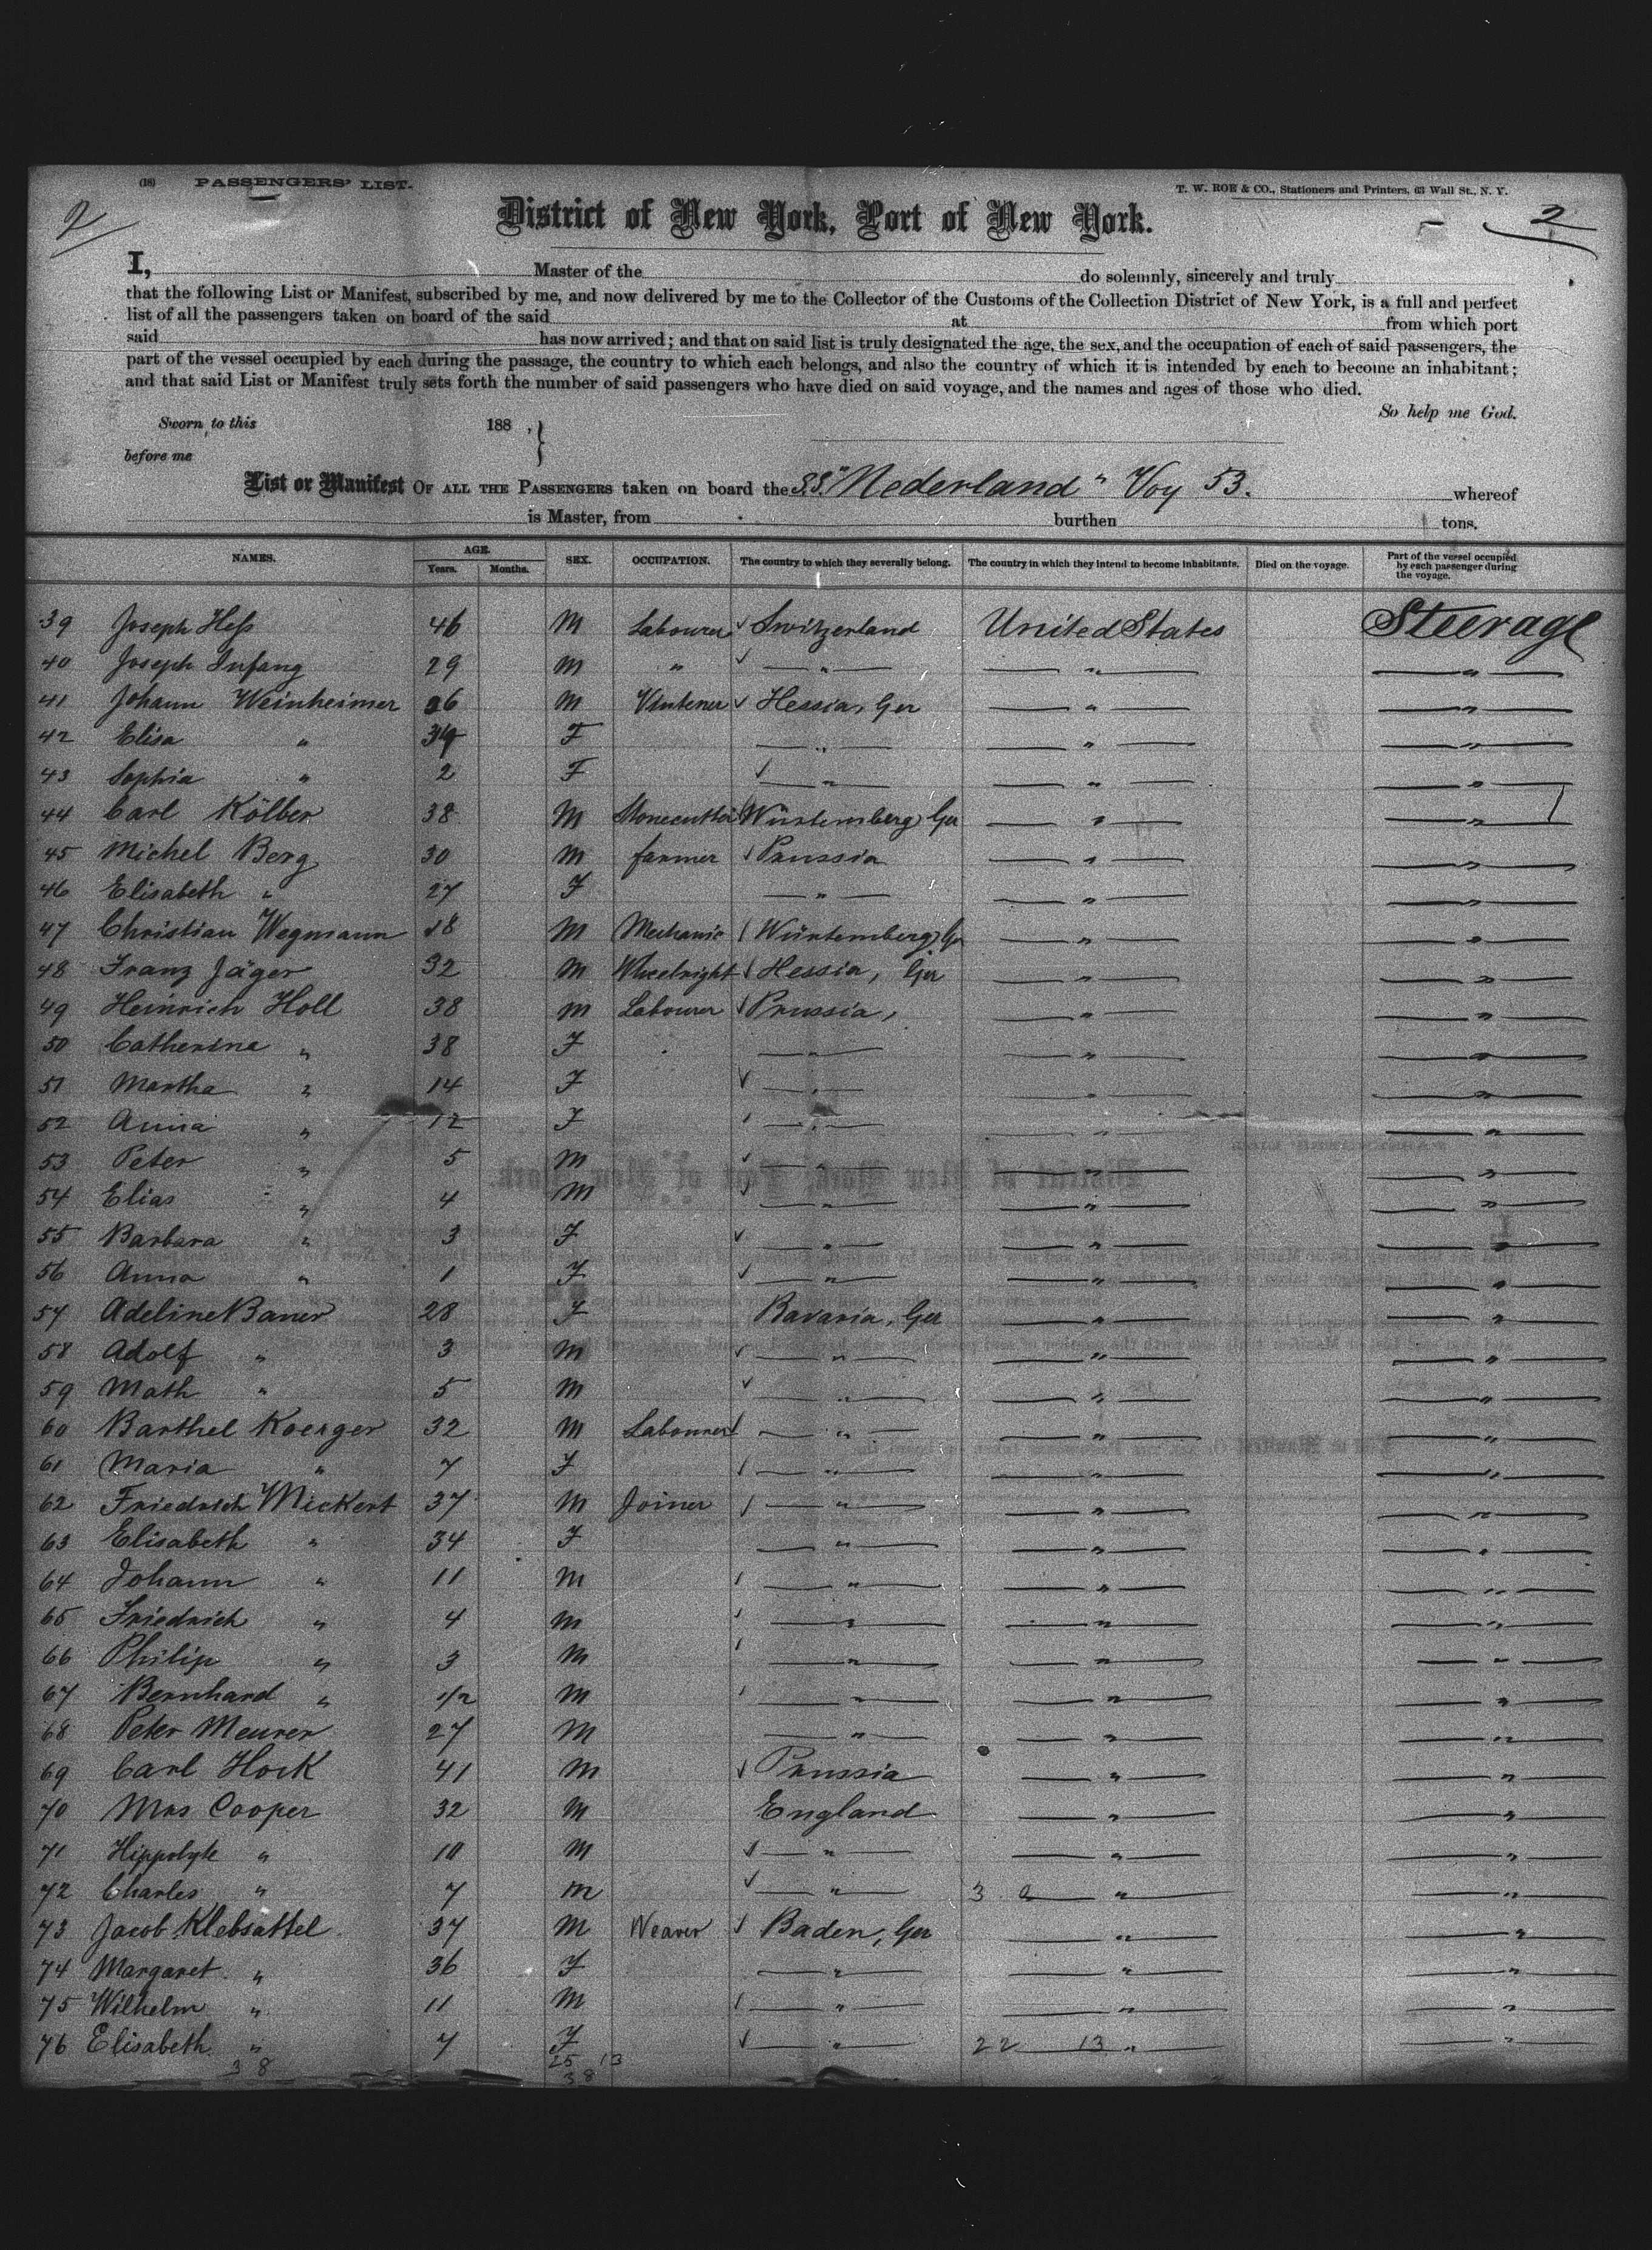 (18) PASSENGERS' LIST.
T. W. ROE & CO., Stationers and Printers, 63 Wall St., N. Y.
2 2
District of New York, Port of New York.
I, Master of the do solemnly, sincerely and truly
that the following List or Manifest, subscribed by me, and now delivered by me to the Collector of the Customs of the Collection District of New York, is a full and perfect
list of all the passengers taken on board of the said at from which port
said has now arrived; and that on said list is truly designated the age, the sex, and the occupation of each of said passengers, the
part of the vessel occupied by each during the passage, the country to which each belongs, and also the country of which it is intended by each to become an inhabitant;
and that said List or Manifest truly sets forth the number of said passengers who have died on said voyage, and the names and ages of those who died.
So help me God.
Sworn to this 188 ,
before me
List or Manifest OF ALL THE PASSENGERS taken on board the S.S. "Nederland" Voy 53. whereof
is Master, from burthen tons.
NAMES. AGE. Years. Months. SEX. OCCUPATION. The country to which they severally belong. The country in which they intend to become inhabitants. Died on the voyage. Part of the vessel occupied by each passenger during the voyage.
39 Joseph Hess 46 M Labourer Switzerland United States Steerage
40 Joseph Infang 29 M " " " "
41 Johann Weinheimer 26 M Vintener Hessia, Ger " "
42 Elisa " 34 F " " "
43 Sophia " 2 F " " "
44 Carl Kölber 38 M Stonecutter Würtemberg, Ger " "
45 Michel Berg 30 M farmer Prussia " "
46 Elisabeth " 27 F " " "
47 Christian Wegmann 18 M Mechanic Würtemberg, Ger " "
48 Franz Jäger 32 M Wheelright Hessia, Ger " "
49 Heinrich Holl 38 M Labourer Prussia, " "
50 Catherina " 38 F " " "
51 Martha " 14 F " " "
52 Anna " 12 F " " "
53 Peter " 5 M " " "
54 Elias " 4 M " " "
55 Barbara " 3 F " " "
56 Anna " 1 F " " "
57 Adeline Bauer 28 F Bavaria, Ger " "
58 Adolf " 3 M " " "
59 Math " 5 M " " "
60 Barthel Koerger 32 M Labourer " " "
61 Maria " 7 F " " "
62 Friedrich Mickert 37 M Joiner " " "
63 Elisabeth " 34 F " " "
64 Johann " 11 M " " "
65 Friedrich " 4 M " " "
66 Philip " 3 M " " "
67 Bernhard " 1/2 M " " "
68 Peter Meurer 27 M " " "
69 Carl Hock 41 M Prussia " "
70 Mrs Cooper 32 M England " "
71 Hippolyte " 10 M " " "
72 Charles " 7 M " 3 " "
73 Jacob Klebsattel 37 M Weaver Baden, Ger " "
74 Margaret " 36 F " " "
75 Wilhelm " 11 M " " "
76 Elisabeth " 7 F " 22 13 " "
38 25 13
38